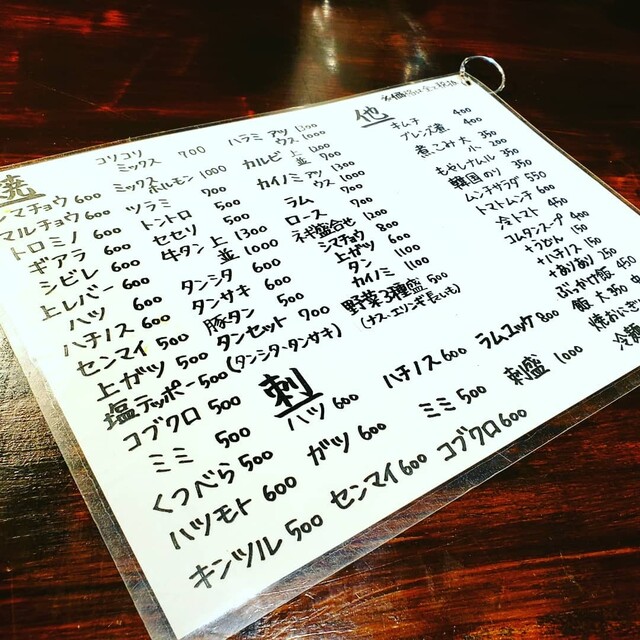 焼
シマチョウ 600
マルチョウ 600
トロミノ 600
ギアラ 600
シビレ 600
上レバー 600
ハツ 600
ハチノス 600
センマイ 500
上ガツ 500
塩テッポー 500
コブクロ 500
ミミ 500
くつべら 500
ハツモト 600
キンツル 500
コリコリ
ミックス 700
ミックス
ホルモン 1000
ツラミ 900
トントロ 500
セセリ 500
牛タン 上 1300
並 1000
タンシタ 600
タンサキ 600
豚タン 500
タンセット 700
(タンシタ・タンサキ)
ハラミ アツ 1300
ウス 1000
カルビ 上 1200
並 900
カイノミ アツ 1300
ウス 1000
ラム 700
ロース 900
ネギ盤合せ 1200
シマチョウ 800
上ガツ 600
タン 1100
カイノミ 1100
野菜3種盛 500
(ナス・エリンギ・長いも)
刺
ハツ 600
ガツ 600
センマイ 600
ハチノス 600
ミミ 500
コブクロ 600
ラムユッケ 800
刺盛 1000
他
キムチ 400
プレンズ煮 400
煮こみ 大 350
小 200
もやしナムル 350
韓国のり 350
ムンチサラダ 550
トマトムンチ 600
冷トマト 450
コムタンスープ 400
+うどん 150
+ハチノス 150
+ありあり 250
ぶっかけ飯 450
飯 大 350
焼おにぎり
冷麺